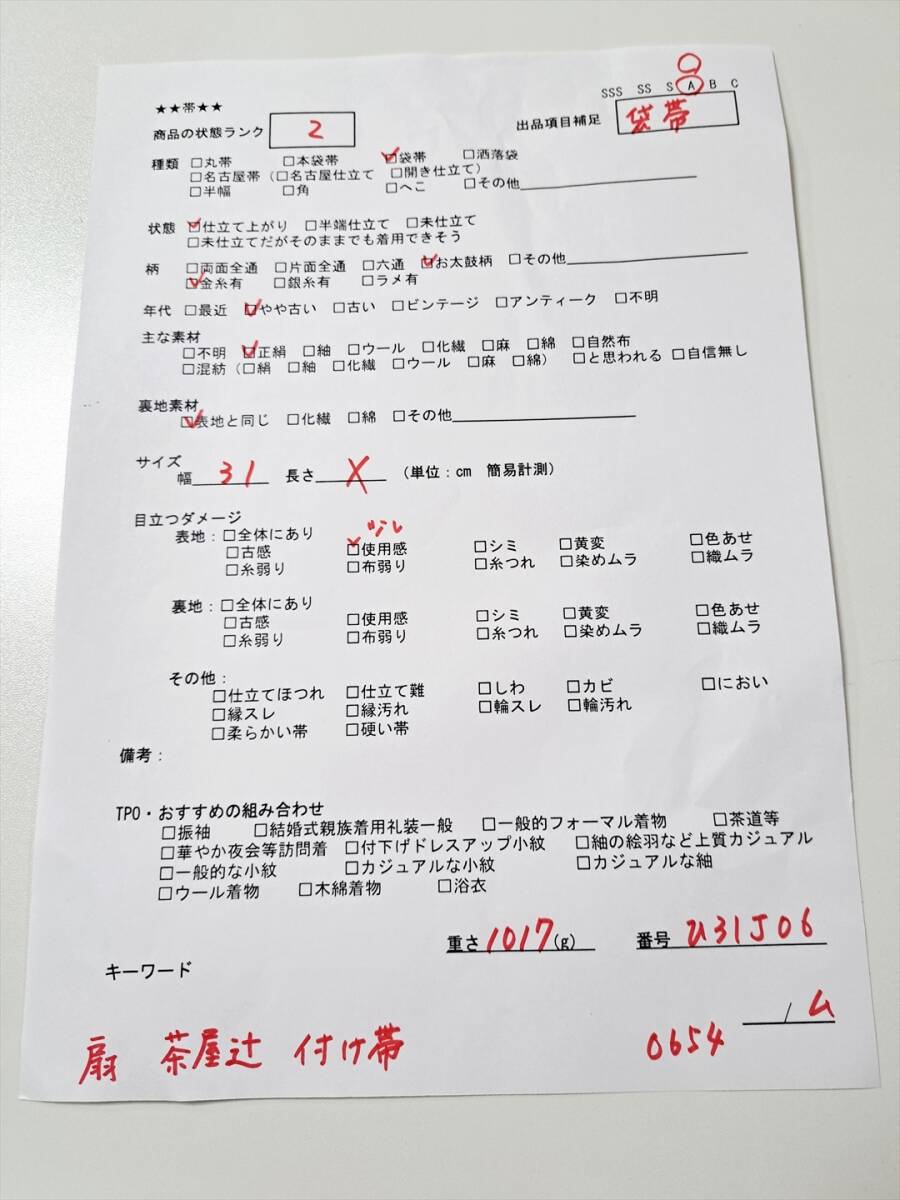 ★★帯★★
SSS SS S A B C
商品の状態ランク 2 出品項目補足 袋帯
種類 □丸帯 □本袋帯 ☑袋帯 □洒落袋
□名古屋帯(□名古屋仕立て □開き仕立て)
□半幅 □角 □へこ □その他
状態 ☑仕立て上がり □半端仕立て □未仕立て
□未仕立てだがそのままでも着用できそう
柄 □両面全通 □片面全通 □六通 ☑お太鼓柄 □その他
☑金糸有 □銀糸有 □ラメ有
年代 □最近 ☑やや古い □古い □ビンテージ □アンティーク □不明
主な素材
□不明 ☑正絹 □紬 □ウール □化繊 □麻 □綿 □自然布
□混紡(□絹 □紬 □化繊 □ウール □麻 □綿) □と思われる □自信無し
裏地素材
☑表地と同じ □化繊 □綿 □その他
サイズ
幅 31 長さ X (単位:cm 簡易計測)
目立つダメージ
少し
表地:□全体にあり
□古感 ☑使用感 □シミ □黄変 □色あせ
□糸弱り □布弱り □糸つれ □染めムラ □織ムラ
裏地:□全体にあり
□古感 □使用感 □シミ □黄変 □色あせ
□糸弱り □布弱り □糸つれ □染めムラ □織ムラ
その他:
□仕立てほつれ □仕立て難 □しわ □カビ □におい
□縁スレ □縁汚れ □輪スレ □輪汚れ
□柔らかい帯 □硬い帯
備考:
TPO・おすすめの組み合わせ
□振袖 □結婚式親族着用礼装一般 □一般的フォーマル着物 □茶道等
□華やか夜会等訪問着 □付下げドレスアップ小紋 □紬の絵羽など上質カジュアル
□一般的な小紋 □カジュアルな小紋 □カジュアルな紬
□ウール着物 □木綿着物 □浴衣
重さ 1017(g) 番号 U31J06
キーワード
/ム
扇 茶屋辻 付け帯 0654